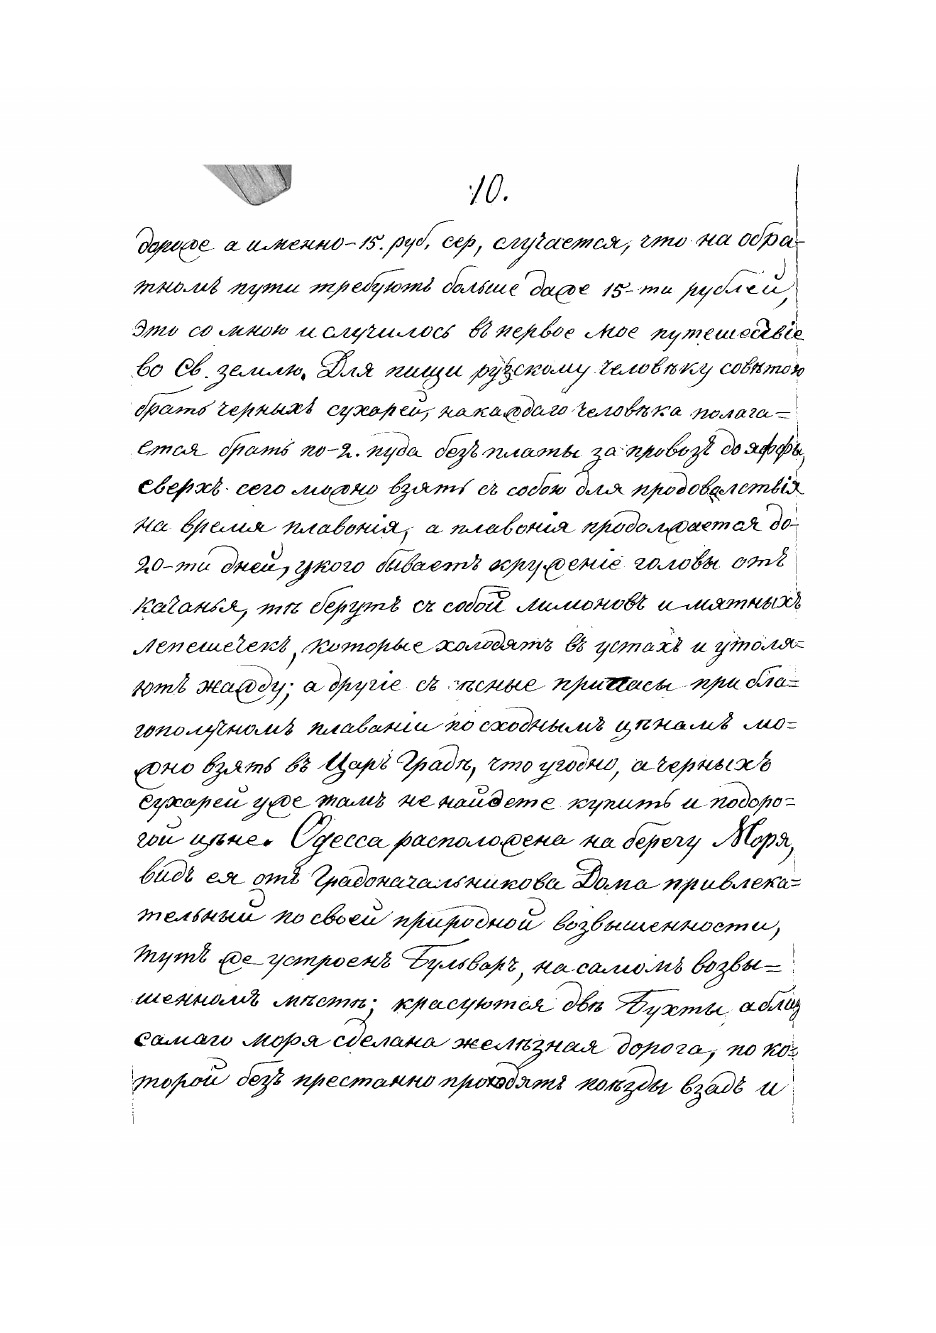 10.
дороже а именно-15. руб, сер, случается, что на обра-
тномъ пути требуютъ больше даже 15-ти рублей,
это со мною и случилось въ первое мое путешествіе
во Св. землю. Для пищи русскому человѣку совѣтою
брать черныхъ сухарей, на каждаго человѣка полага=
ется брать по-2. пуда безъ платы за провозъ до яффы,
сверхъ сего можно взять съ собою для продоволствія
на время плавонія, а плавонія продолжается до-
20-ти дней, укого бываетъ круженіе головы отъ
качанья, тѣ берутъ съ собой лимоновъ и мятныхъ
лепешечекъ, которые холодятъ въ устахъ и утоля=
ютъ жажду; а другіе съѣсные припасы при бла=
гополучномъ плаваніи по сходнымъ цѣнамъ мо=
жно взять въ Царь Градѣ, что угодно, а черныхъ
сухарей уже тамъ не найдете купить и подоро=
гой цѣне. Одесса расположена на берегу Моря,
видъ ея отъ Градоначальникова Дома привлека=
тельный по своей природной возвышенности,
тутъ же устроенъ Бульваръ, на самомъ возвы=
шенномъ мѣстѣ; красуются двѣ Бухты, а близ
самаго моря сделана желѣзная дорога, по ко=
торой безъ престанно проходятъ поѣзды взадъ и